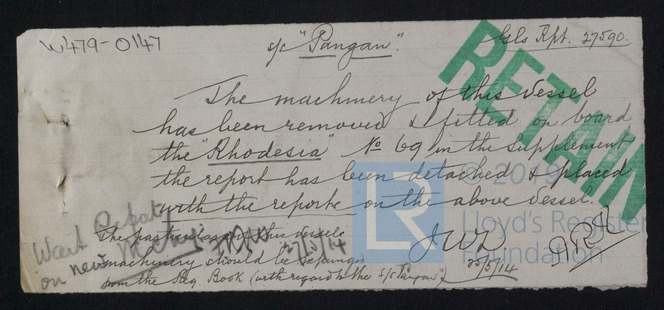 W479-0147
s/s "Pangan". Gls Rpt. 27590.
RETAIN
The machinery of this vessel
has been removed & fitted on board
the "Rhodesia" No 69 in the supplement
the report has been detached & placed
with the reports on the above vessel.
© 20
LR
Lloyd's Register
Foundation
JWD
25/5/14
Want
on new
The particulars of this vessel's
machinery should be expunged
from the Reg Book (with regard to the S/S "Pangan")